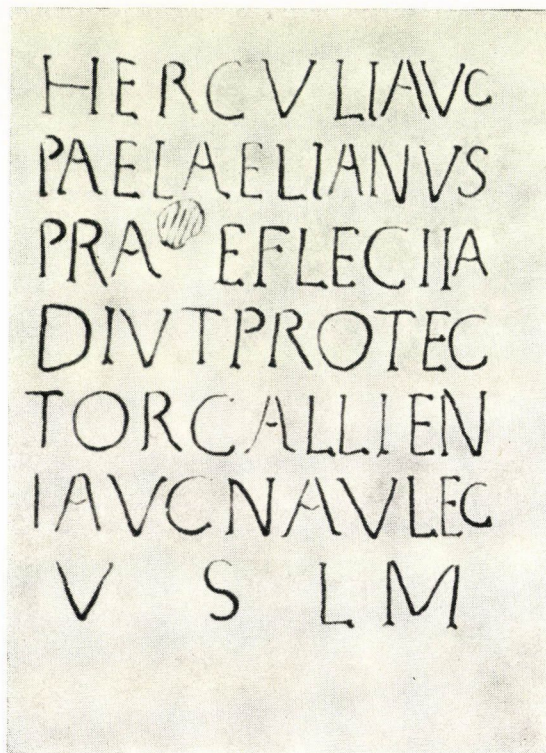 HERCVLIAVC
PAELAELIANVS
PRA EFLECIIA
DIVTPROTEC
TORCALLIEN
IAVCNAVLEC
V S L M